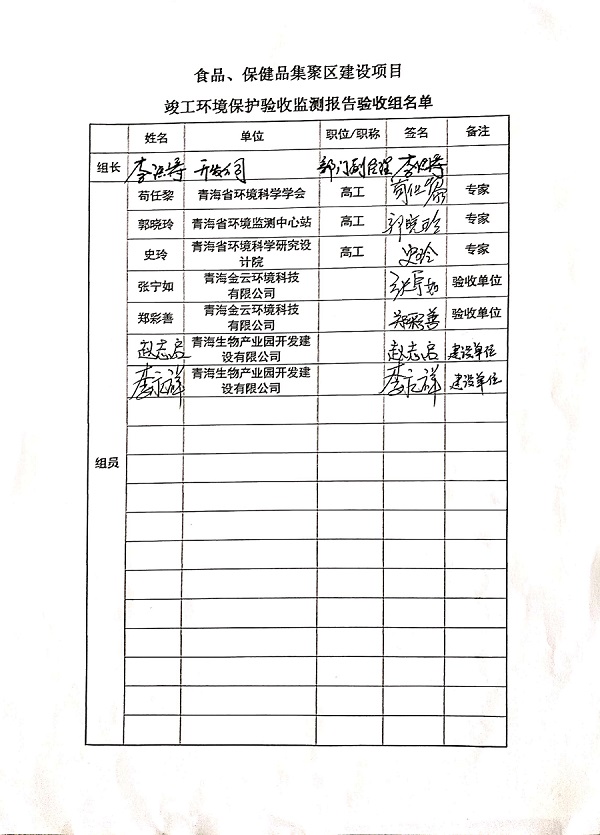 食品、保健品集聚区建设项目
竣工环境保护验收监测报告验收组名单
姓名 单位 职位/职称 签名 备注
组长 开发公司 部门副经理
荀任黎 青海省环境科学学会 高工 荀任黎 专家
郭晓玲 青海省环境监测中心站 高工 郭晓玲 专家
史玲 青海省环境科学研究设
计院 高工 史玲 专家
张宁如 青海金云环境科技
有限公司 张宁如 验收单位
郑彩善 青海金云环境科技
有限公司 郑彩善 验收单位
赵志启 青海生物产业园开发建
设有限公司 赵志启 建设单位
李永祥 青海生物产业园开发建
设有限公司 李永祥 建设单位
组员